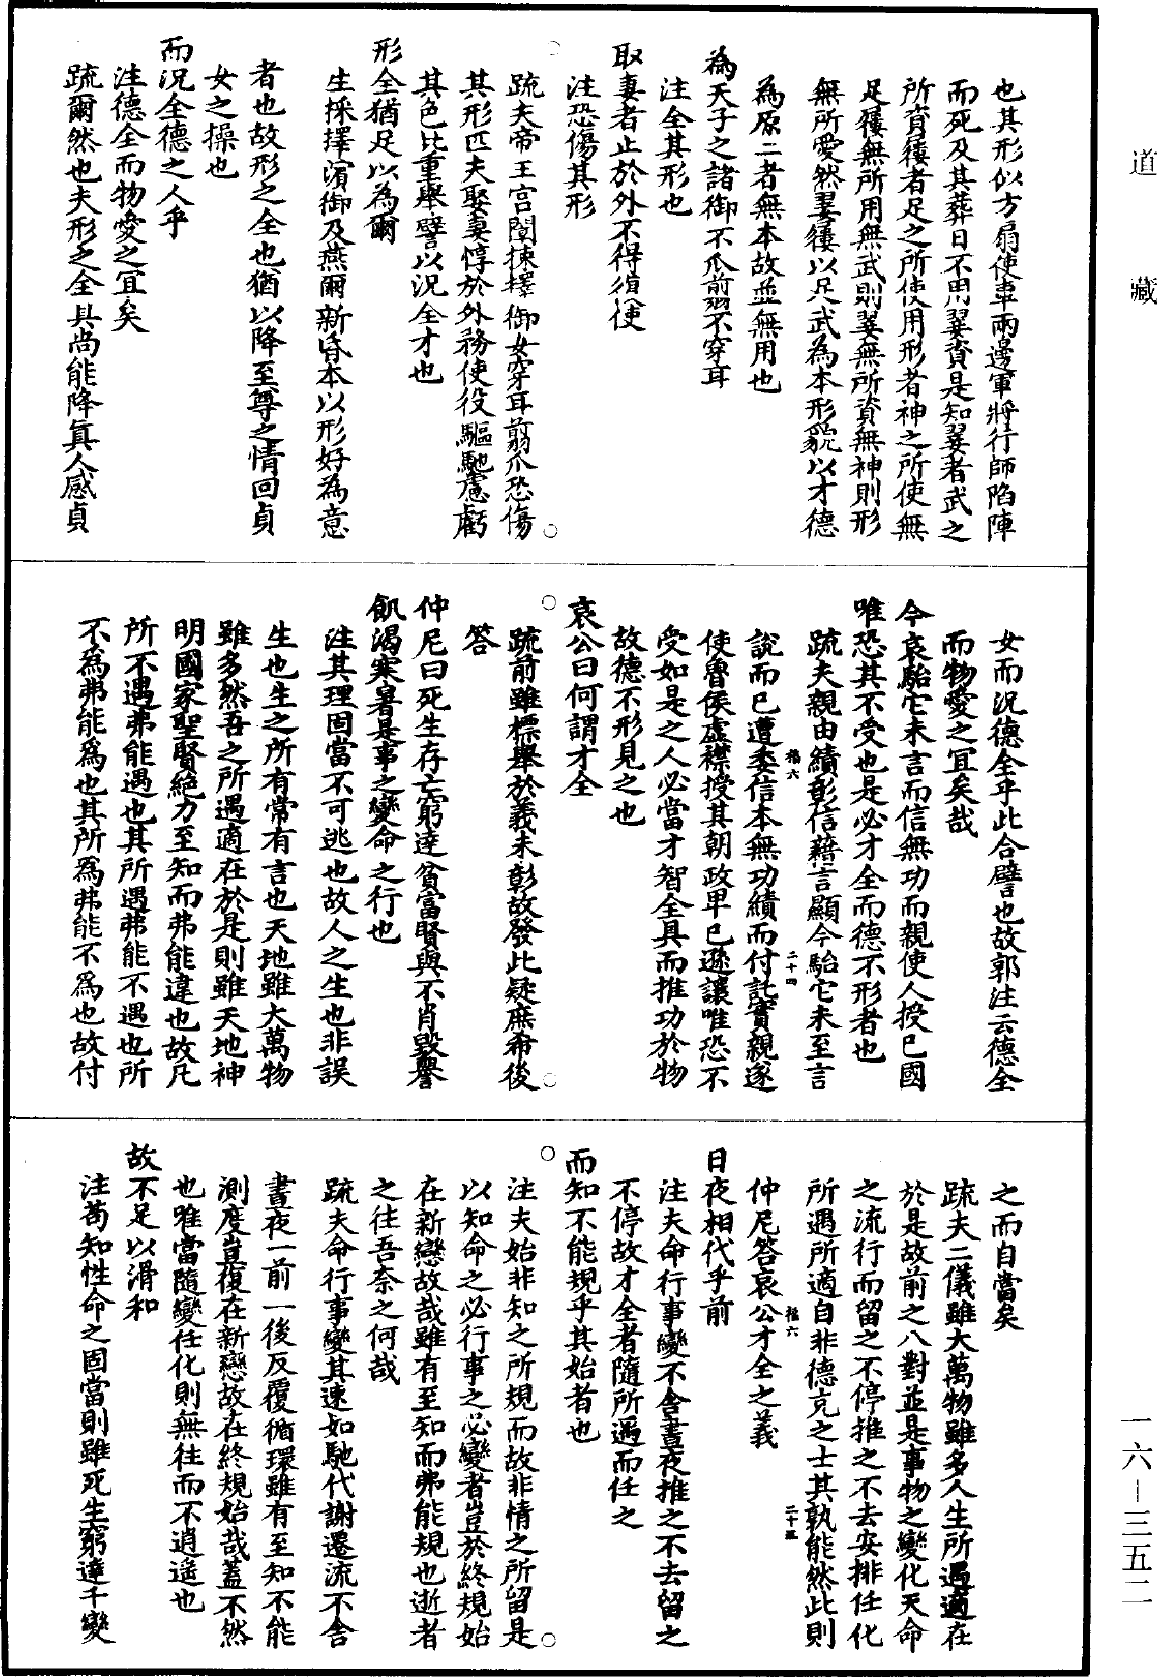 道藏
也其形似方扇使車兩邊軍將行師陷陣
而死及其葬日不用翣資是知翣者武之
所資屨者足之所使用形者神之所使無
足屨無所用無武則翣無所資無神則形
無所愛然翣屨以足武為本形貌以才德
為原二者無本故並無用也
為天子之諸御不爪翦不穿耳
注全其形也
取妻者止於外不得復使
注恐傷其形
疏夫帝王宮闈揀擇御女穿耳翦爪恐傷
其形匹夫娶妻惇於外務使役驅馳慮虧
其色比重舉譬以況全才也
形全猶足以為爾
生採擇濱御及燕爾新昏本以形好為意
者也故形之全也猶以降至尊之情回貞
女之操也
而況全德之人乎
注德全而物愛之宜矣
疏爾然也夫形之全具尚能降真人感貞
女而況德全乎此合譬也故郭注云德全
而物愛之宜矣哉
今哀駘它未言而信無功而親使人授已國
唯恐其不受也是必才全而德不形者也
疏夫親由績彰信藉言顯今駘它未至言
說而已遭委信本無功績而付託實親遂
使魯侯虛襟授其朝政卑已遜讓唯恐不
受如是之人必當才智全具而推功於物
故德不形見之也
哀公曰何謂才全
疏前雖標舉於義未彰故發此疑庶希後
答
仲尼曰死生存亡窮達貧富賢與不肖毀譽
飢渴寒暑是事之變命之行也
注其理固當不可逃也故人之生也非誤
生也生之所有常有言也天地雖大萬物
雖多然吾之所遇適在於是則雖天地神
明國家聖賢絕力至知而弗能違也故凡
所不遇弗能遇也其所遇弗能不遇也所
不為弗能為也其所為弗能不為也故付
之而自當矣
疏夫二儀雖大萬物雖多人生所遇適在
於是故前之八對並是事物之變化天命
之流行而留之不停推之不去安排任化
所遇所適自非德充之士其孰能然此則
仲尼答哀公才全之義
日夜相代乎前
注夫命行事變不舍晝夜推之不去留之
不停故才全者隨所遇而任之
而知不能規乎其始者也
注夫始非知之所規而故非情之所留是
以知命之必行事之必變者豈於終規始
在新戀故哉雖有至知而弗能規也逝者
之往吾奈之何哉
疏夫命行事變其速如馳代謝遷流不舍
晝夜一前一後反覆循環雖有至知不能
測度豈復在新戀故在終規始哉蓋不然
也唯當隨變任化則無往而不逍遙也
故不足以滑和
注苟知性命之固當則雖死生窮達千變
一六—三五二